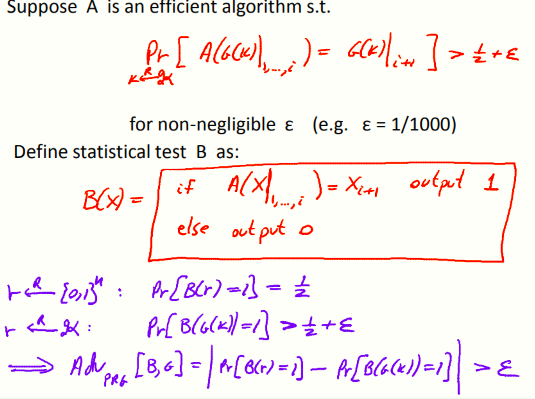 Suppose A is an efficient algorithm s.t.
Pr [ A(G(k)|₁,...,ᵢ) = G(k)|ᵢ₊₁ ] > ½ + ε
k ←ᴿ 𝒦
for non-negligible ε (e.g. ε = 1/1000)
Define statistical test B as:
B(x) = if A(x|₁,...,ᵢ) = xᵢ₊₁ output 1
else output 0
r ←ᴿ {0,1}ⁿ : Pr[B(r)=1] = ½
r ←ᴿ 𝒦 : Pr[B(G(k))=1] > ½ + ε
⟹ Adv_PRG [B,G] = | Pr[B(r)=1] − Pr[B(G(k))=1] | > ε